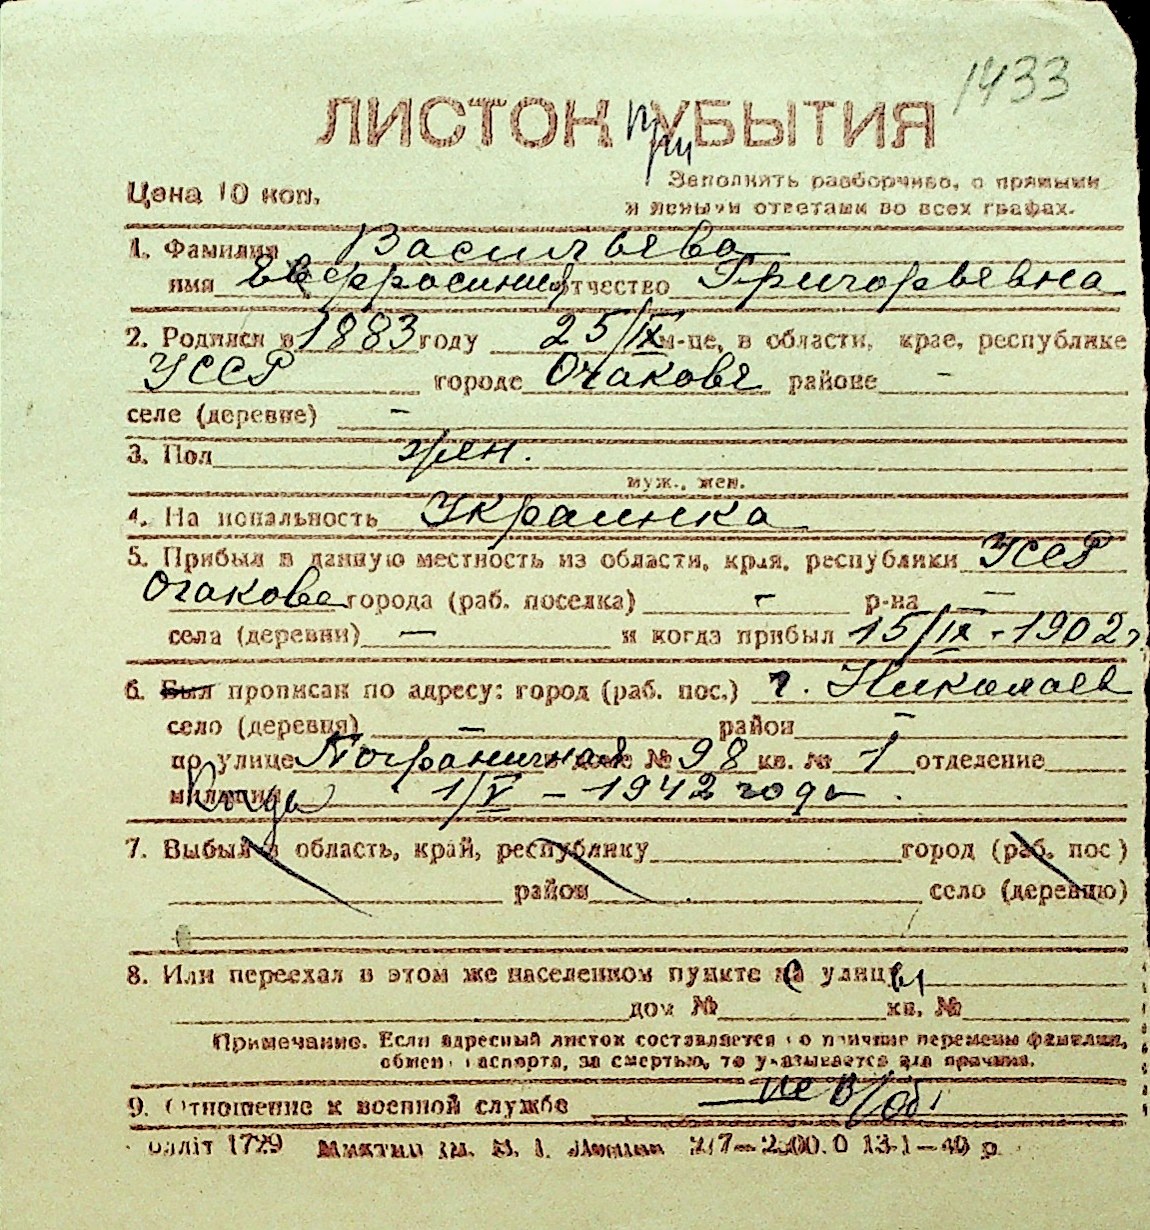 1433
ЛИСТОК при УБЫТИЯ
Цена 10 коп.
Заполнять разборчиво, с прямыми
и ясными ответами во всех графах.
1. Фамилия Васильева
имя Евфросиния отчество Григорьевна
2. Родился в 1883 году 25/IX м-це, в области, крае, республике
УССР городе Очакове районе -
селе (деревне) -
3. Пол жен.
муж., жен.
4. На иональность Украинка
5. Прибыл в данную местность из области, края, республики УССР
Очакова города (раб. поселка) - р-на -
села (деревни) - и когда прибыл 15/IX - 1902 г.
6. Был прописан по адресу: город (раб. пос.) г. Николаев
село (деревня) - район -
по улице Пограничная доме № 98 кв. № 1 отделение
милиции Когда 1/V - 1942 года.
7. Выбыл в область, край, республику город (раб. пос)
район село (деревню)
8. Или переехал в этом же населенном пункте с улицы
дом № кв. №
Примечание. Если адресный листок составляется по причине перемены фамилии,
обмена паспорта, за смертью, то указывается эта причина.
9. Отношение к военной службе не в/об.
облліт 1729 2/7-2500.0 13-1-40 р.